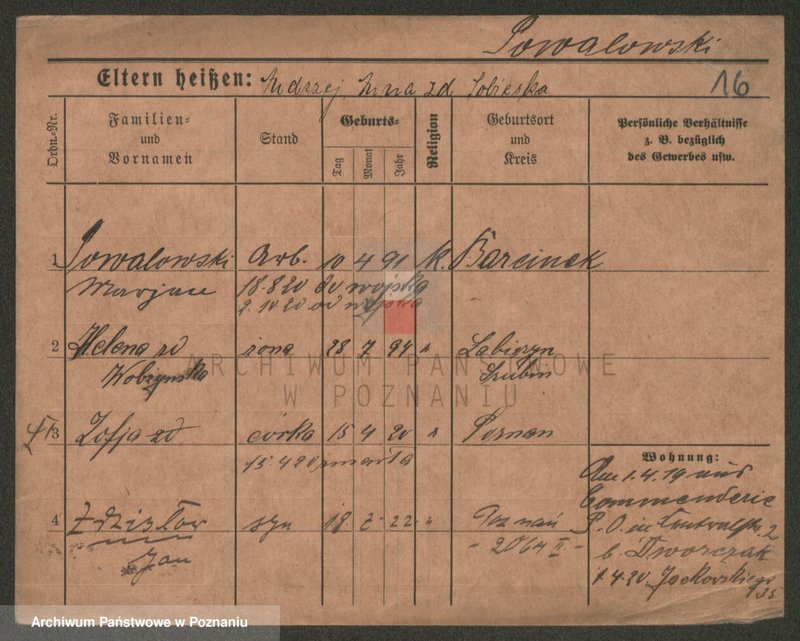 Powalowski
Eltern heißen: Andrzej, Anna zd Sobieska
16
Ordn.-Nr.
Familien-
und
Vornamen
Stand
Geburts-
Tag
Monat
Jahr
Religion
Geburtsort
und
Kreis
Persönliche Verhältnisse
z. B. bezüglich
des Gewerbes usw.
1 Powalowski Arb. 10 4 91 k. Barcinek
Marjan 18.8.20 do wojska
2.10.20 od wojska
2 Helena zd żona 28 7 94 " Łabiszyn
Szubin
3 Zofja córka 15 4 20 " Poznan
15.4.20 zmarła
4 Zdzisław syn 18 22 " Poznań
Jan - 2064 II -
Wohnung:
Am 1.4.19 aus
Commenderie
P. O. in 2
b. Dworczak
1.4.20
135
ARCHIWUM PAŃSTWOWE
W POZNANIU
Archiwum Państwowe w Poznaniu